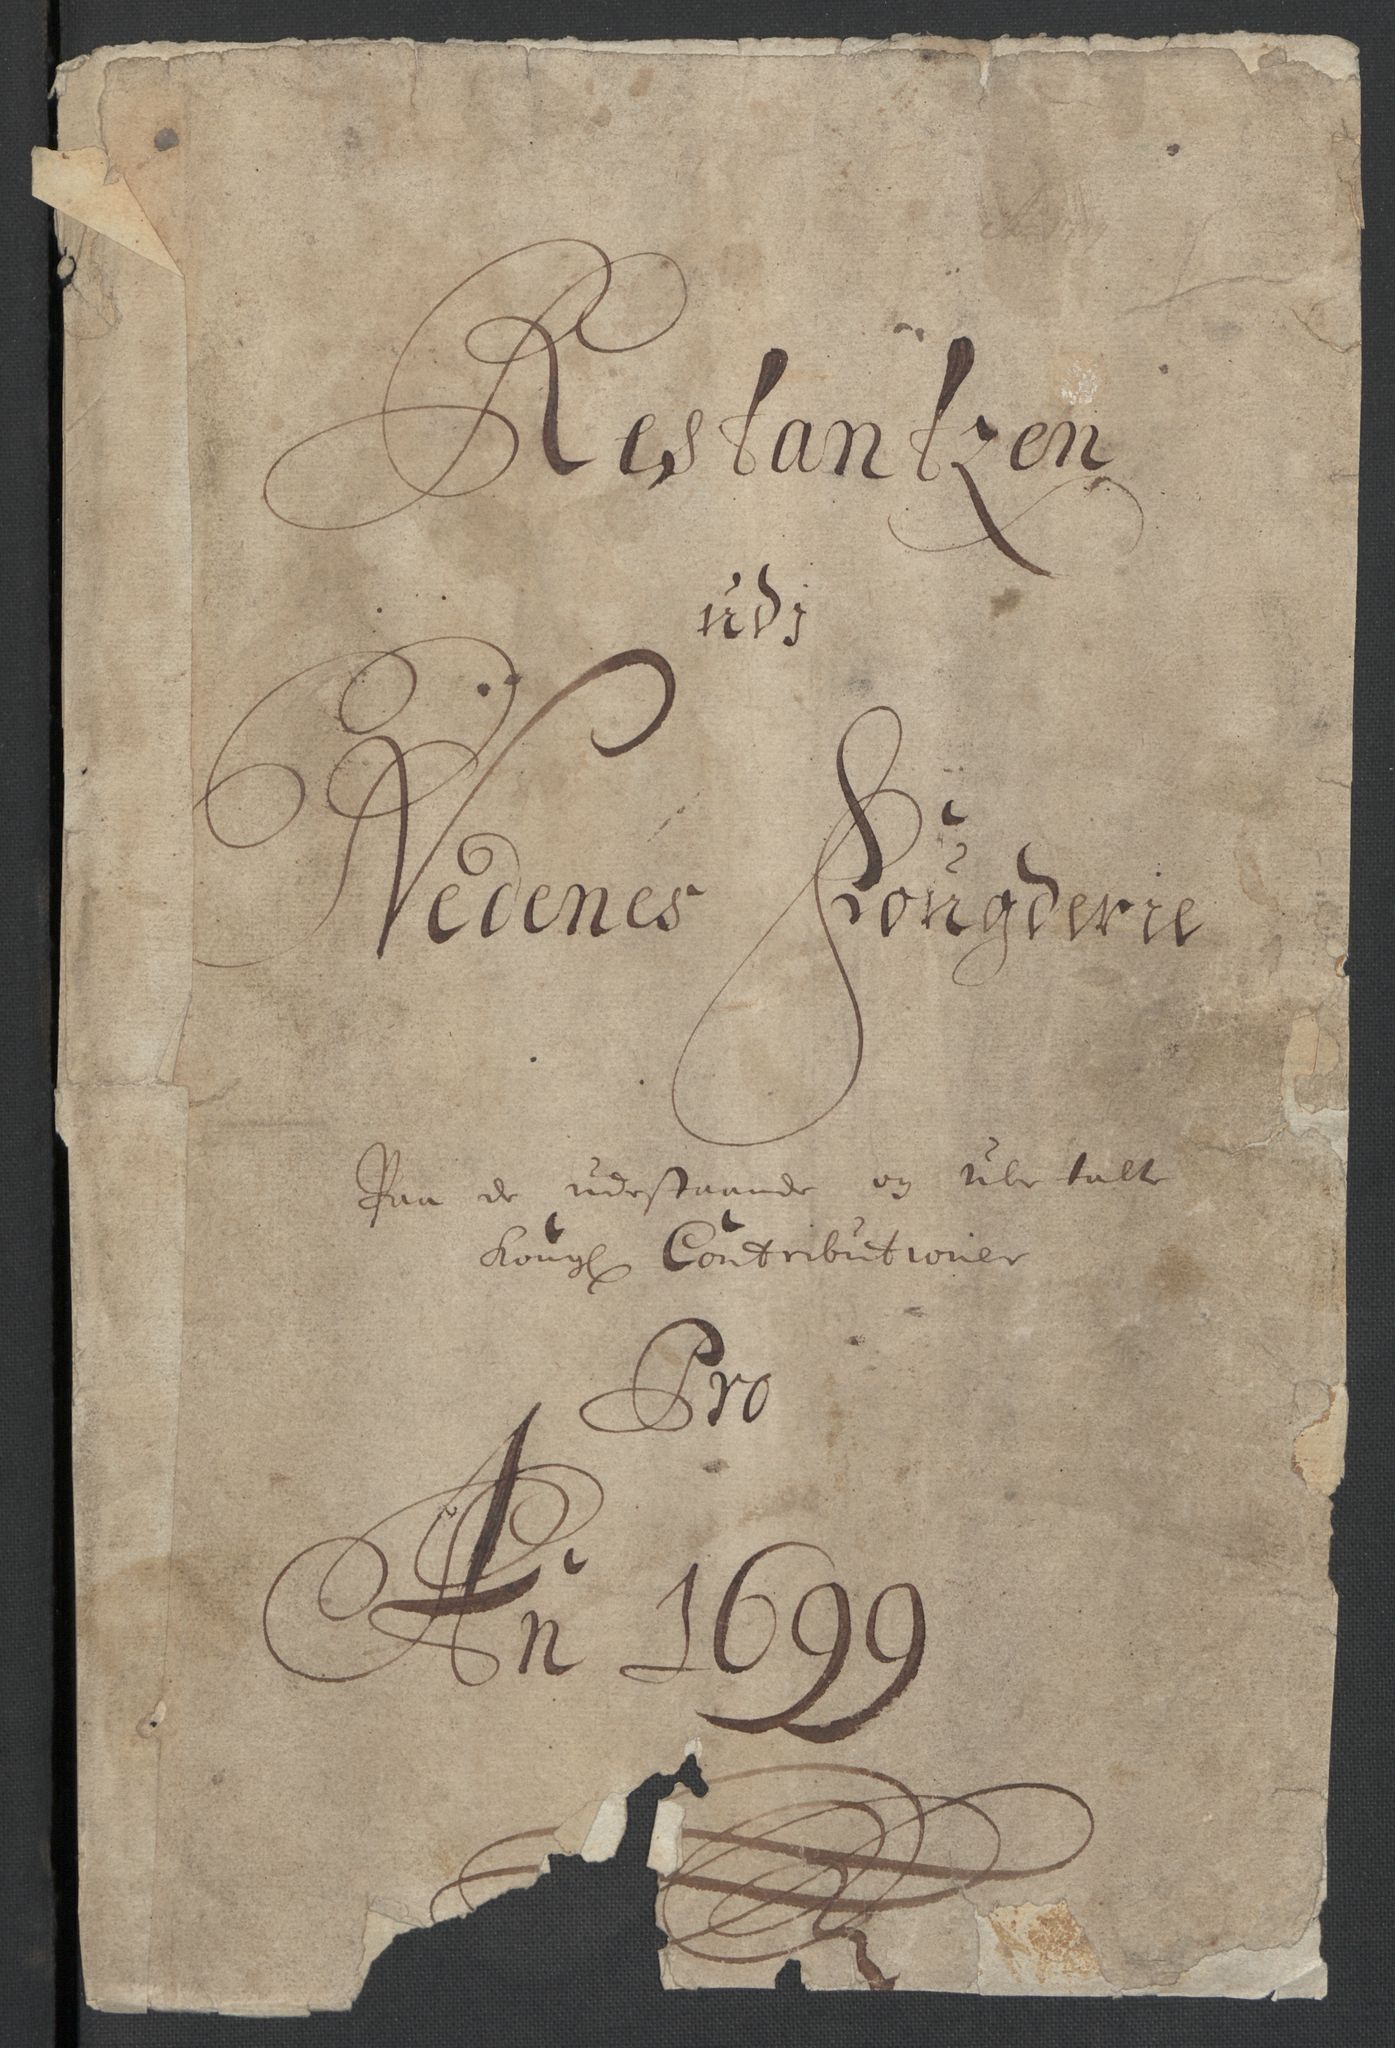 Restantzen
udj
Nedenes Fougderie
Paa de udestaande og ubetalte
Kongl Contributioner
Pro
An 1699